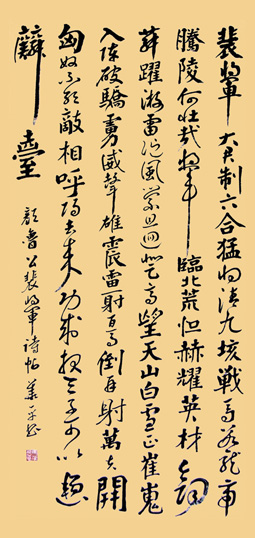 裴將軍 大君制六合猛將清九垓戰馬若龍虎
騰陵何壯哉將軍臨北荒恒赫耀英材劍
舞躍游雷隨風縈且迴登高望天山白雪正崔嵬
入陣破驕虜威聲雄震雷射百馬倒再射萬夫開
匈奴不敢敵相呼歸去來功成報天子可以畫
麟臺
顏魯公裴將軍詩帖